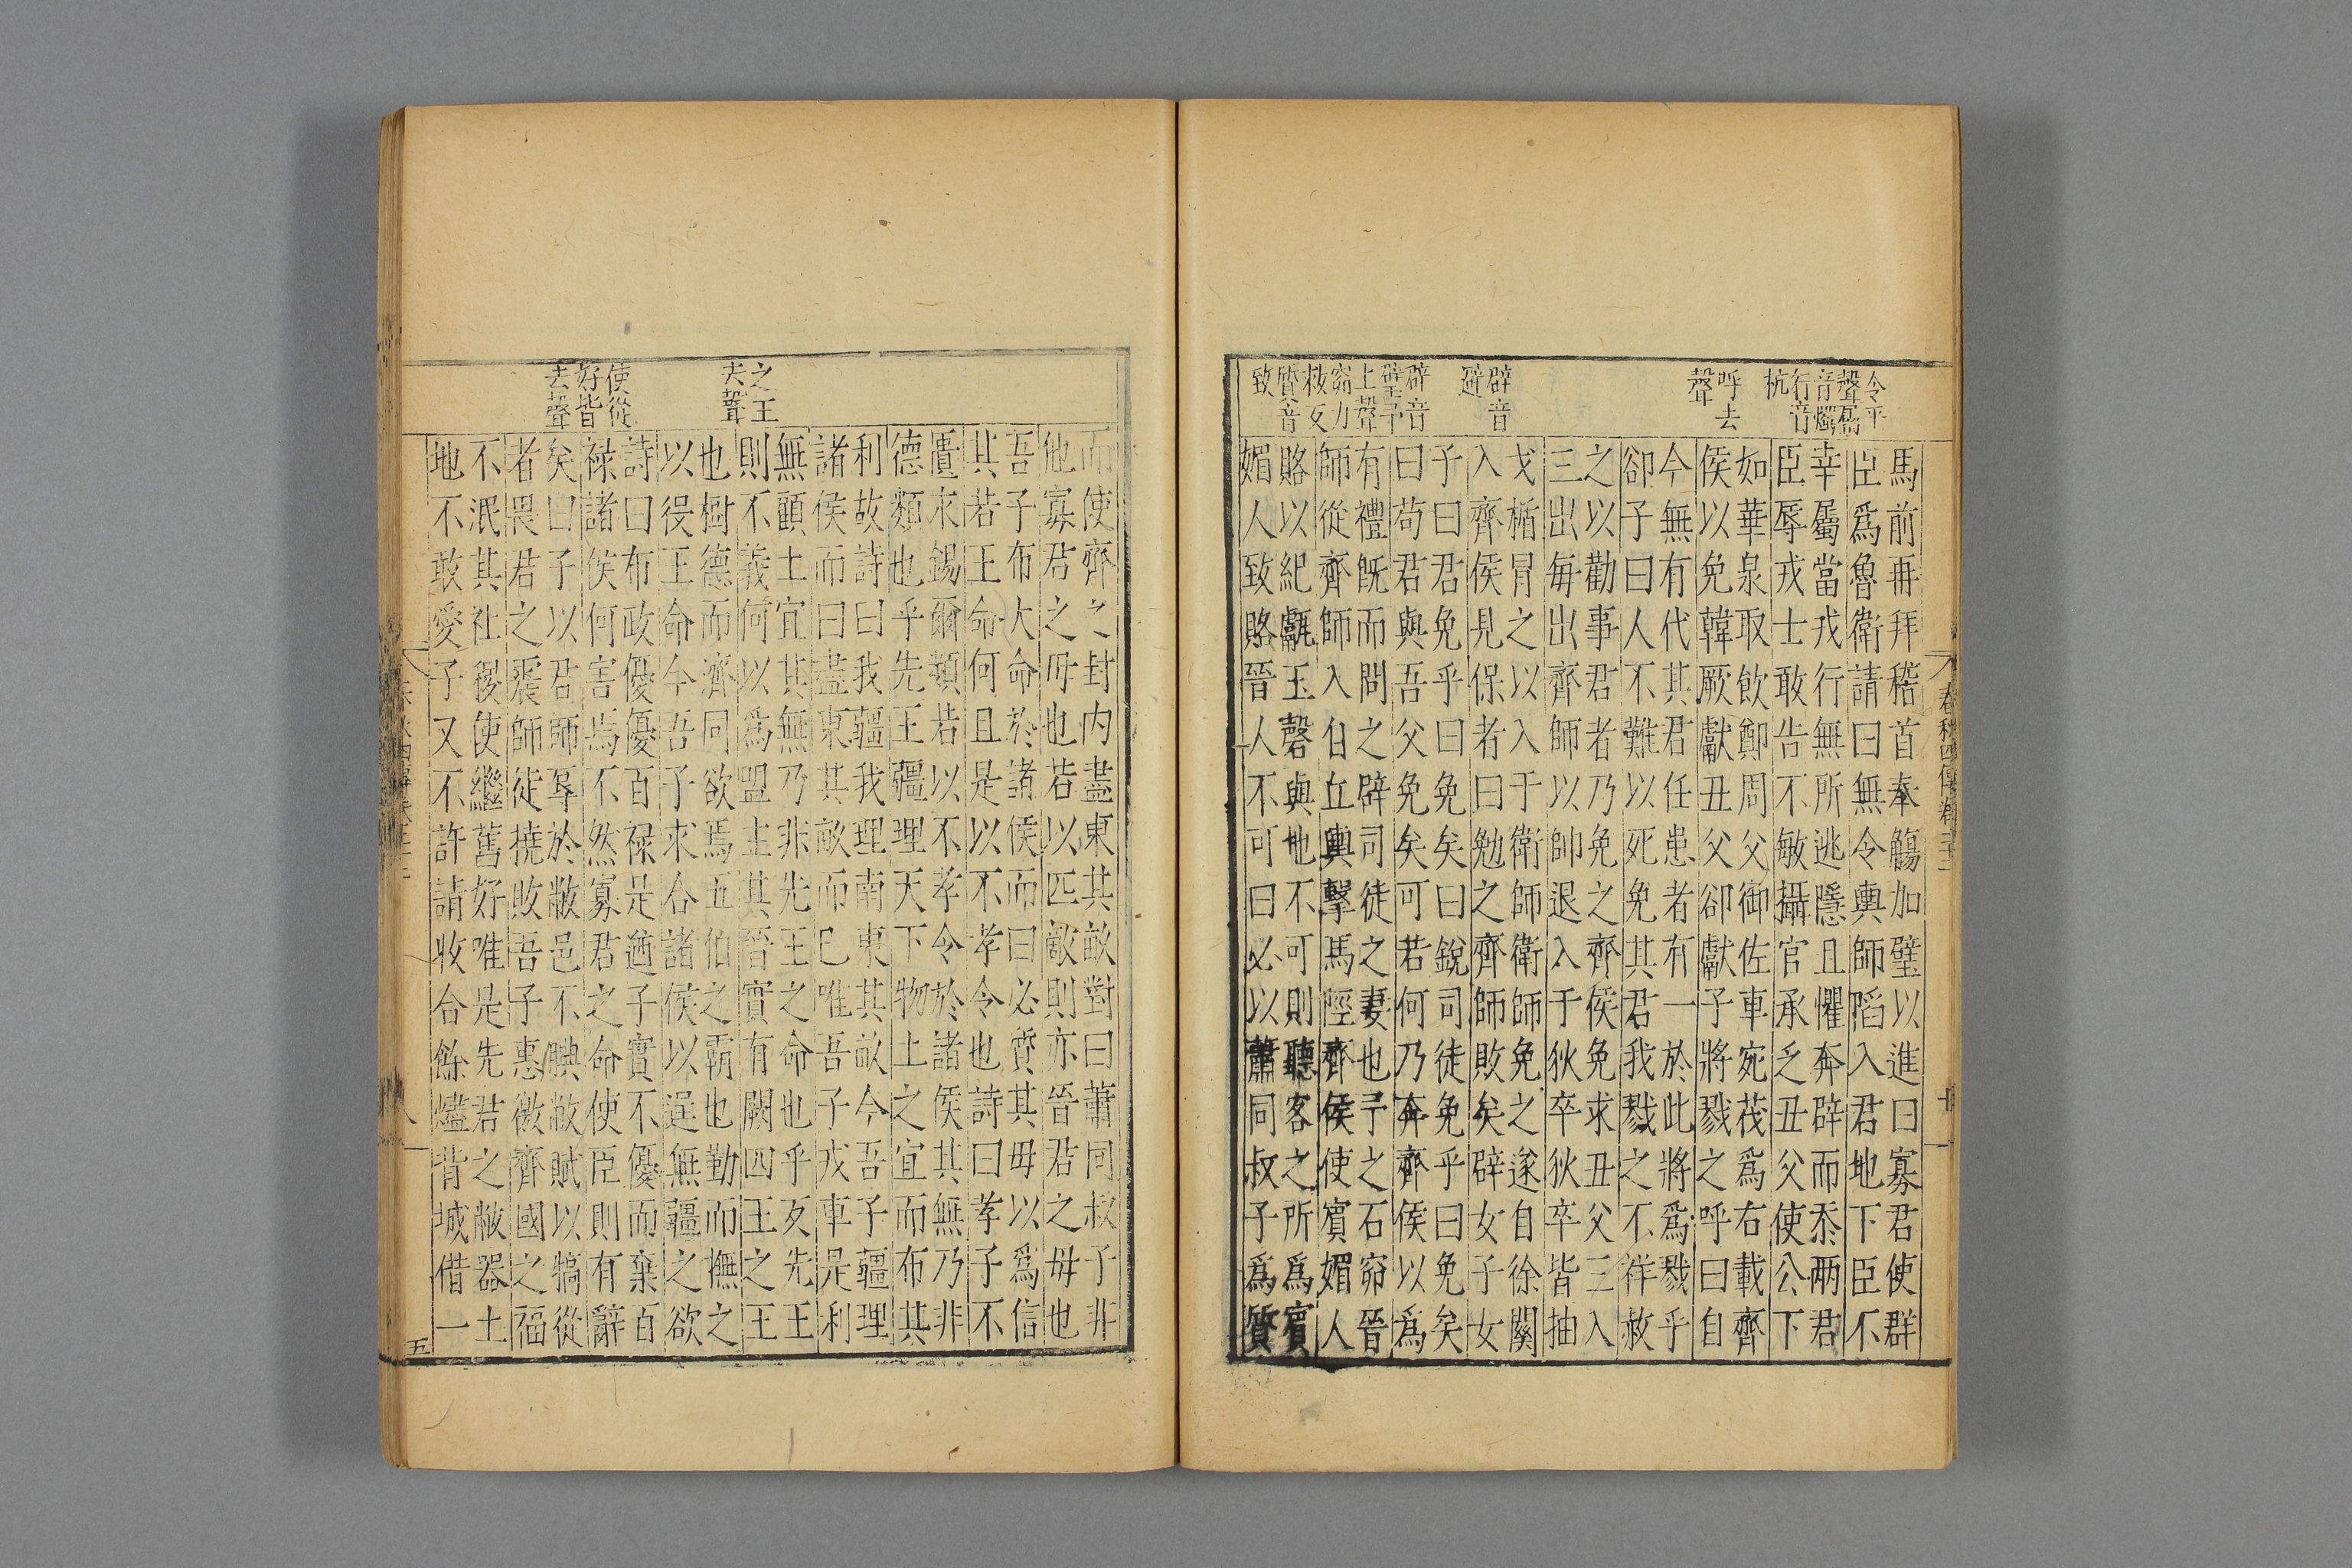 春秋四傳卷二十二
十一
令平
聲屬
音燭
行音
杭
呼去
聲
辟音
避
辟音
璧予
上聲
窌力
救反
質音
致
馬前再拜稽首奉觴加璧以進曰寡君使群
臣爲魯衛請曰無令輿師䧟入君地下臣不
幸屬當戎行無所逃隱且懼奔辟而忝兩君
臣辱戎士敢告不敏攝官承乏丑父使公下
如華泉取飲鄭周父御佐車宛茷爲右載齊
侯以免韓厥獻丑父郤獻子將戮之呼曰自
今無有代其君任患者有一於此將爲戮乎
郤子曰人不難以死免其君我戮之不祥赦
之以勸事君者乃免之齊侯免求丑父三入
三出每出齊師以帥退入于狄卒狄卒皆抽
戈楯冒之以入于衛師衛師免之遂自徐關
入齊侯見保者曰勉之齊師敗矣辟女子女
子曰君免乎曰免矣曰銳司徒免乎曰免矣
曰苟君與吾父免矣可若何乃奔齊侯以爲
有禮旣而問之辟司徒之妻也予之石窌晉
師從齊師入自丘輿擊馬陘齊侯使賓媚人
賂以紀甗玉磬與地不可則聽客之所爲賓
媚人致賂晉人不可曰必以蕭同叔子爲質
之王
去聲
使從
好皆
去聲
而使齊之封内盡東其畝對曰蕭同叔子非
他寡君之毋也若以匹敵則亦晉君之毋也
吾子布大命於諸侯而曰必質其毋以爲信
其若王命何且是以不孝令也詩曰孝子不
匱永錫爾類若以不孝令於諸侯其無乃非
德類也乎先王疆理天下物土之宜而布其
利故詩曰我疆我理南東其畝今吾子疆理
諸侯而曰盡東其畝而已唯吾子戎車是利
無顧土宜其無乃非先王之命也乎反先王
則不義何以爲盟主其晉實有闕四王之王
也樹德而濟同欲焉五伯之霸也勤而撫之
以役王命今吾子求合諸侯以逞無疆之欲
詩曰布政優優百禄是遒子實不優而棄百
禄諸侯何害焉不然寡君之命使臣則有辭
矣曰子以君師辱於敝邑不腆敝賦以犒從
者畏君之震師徒撓敗吾子惠徼齊國之福
不泯其社稷使繼舊好唯是先君之敝器土
地不敢愛子又不許請收合餘燼背城借一
五